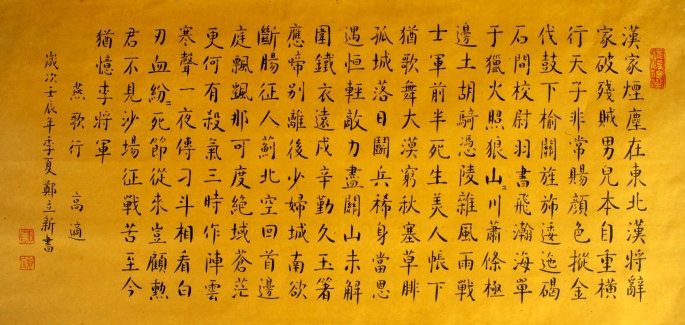 漢家煙塵在東北漢將辭
家破殘賊男兒本自重橫
行天子非常賜顏色摐金
伐鼓下榆關旌旆逶迤碣
石間校尉羽書飛瀚海單
于獵火照狼山〻川蕭條極
邊土胡騎憑陵雜風雨戰
士軍前半死生美人帳下
猶歌舞大漠窮秋塞草腓
孤城落日鬭兵稀身當恩
遇恒輕敵力盡關山未解
圍鐵衣遠戍辛勤久玉箸
應啼別離後少婦城南欲
斷腸征人薊北空回首邊
庭飄颻那可度絕域蒼茫
更何有殺氣三時作陣雲
寒聲一夜傳刁斗相看白
刃血紛〻死節從來豈顧勲
君不見沙場征戰苦至今
猶憶李將軍
燕歌行 高適
歲次壬辰年季夏鄭立新書